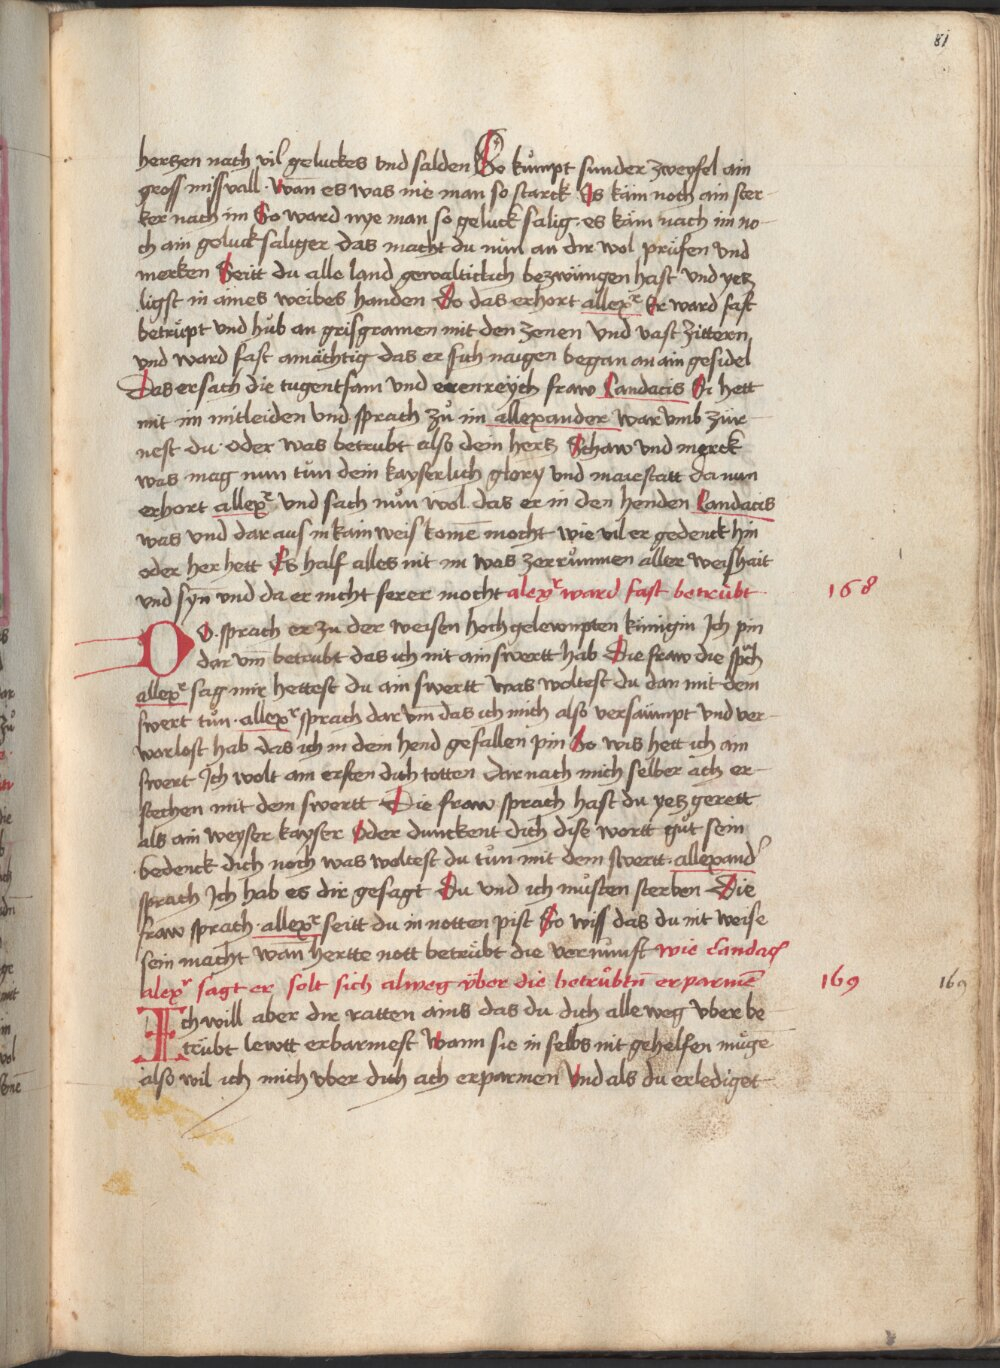 81
hertzen nach vil geluckes vnd salden So kumpt sunder zweyfel ain
gross missvall · wan̄ es was nie man so starck Es käm noch ain ster-
ker nach im So ward nye man so geluck salig · es käm nach im no-
ch ain geluck saliger das macht du nun an dir wol prüfen vnd
merken Seitt du alle land gewalticlich bezwungen hast vnd yetz
ligst in aines weibes handen Do das erhort allexr Er ward fast
betrüpt vnd hůb an grisgramen mit den zenen vnd vast zittern
vnd ward fast amächtig das er sich naigen began an ain gesidel
Das ersach die tugentsam vnd erenreÿch fraw Candacis Si hett
mit im mitleiden vnd sprach zů im allexander war vmb zür-
nest du · oder was betrubt also dein hertz Schaw vnd merck
was mag nun tůn dein kayserlich glory vnd maiestatt da nun
erhort allexr vnd sach nůn wol das er in den henden Candacis
was vnd dar aus in kain weis komē mocht wie vil er gedenck hin
oder her hett Es half alles nit im was zerrunnen aller weishait
vnd syn̄ vnd da er nicht ferer mocht alexr ward fast betrübt
168
DO · sprach er zu der weisen hoch gelewmpten künigin Ich pin
dar vm̄ betrubt das ich nit ain swertt hab Die fraw die spch
allexr sag mir hettest du ain swertt was woltest du dan mit dem
swert tůn · allexr sprach dar vm̄ das ich mich also versaumpt vnd ver-
worlost hab das ich in dein hend gefallen pin So wis hett ich ain
swert Ich wolt am ersten dich totten dar nach mich selber ach er-
stechen mit dem swertt Die fraw sprach hast du yetz gerett
als ain weyser kayser Oder dunckent dich dise wortt gůt sein
bedenck dich noch was woltest du tůn mit dem swertt · allexand'
sprach Ich hab es dir gesagt Du vnd ich můsten sterben Die
fraw sprach · allexr seitt du in notten pist So wiss das du nit weise
sein macht wan̄ hertte nott betrübt die vernunft wie Candacis
alexr sagt er solt sich alweg vber die betrubtn̄ erparmē
169
169
Ich will aber dir ratten ains das du dich alle weg vber be-
trübt lewtt erbarmest Wann sie in selbs nit gehelfen mügē
also wil ich mich vber dich ach erparmen Vnd als du erlediget